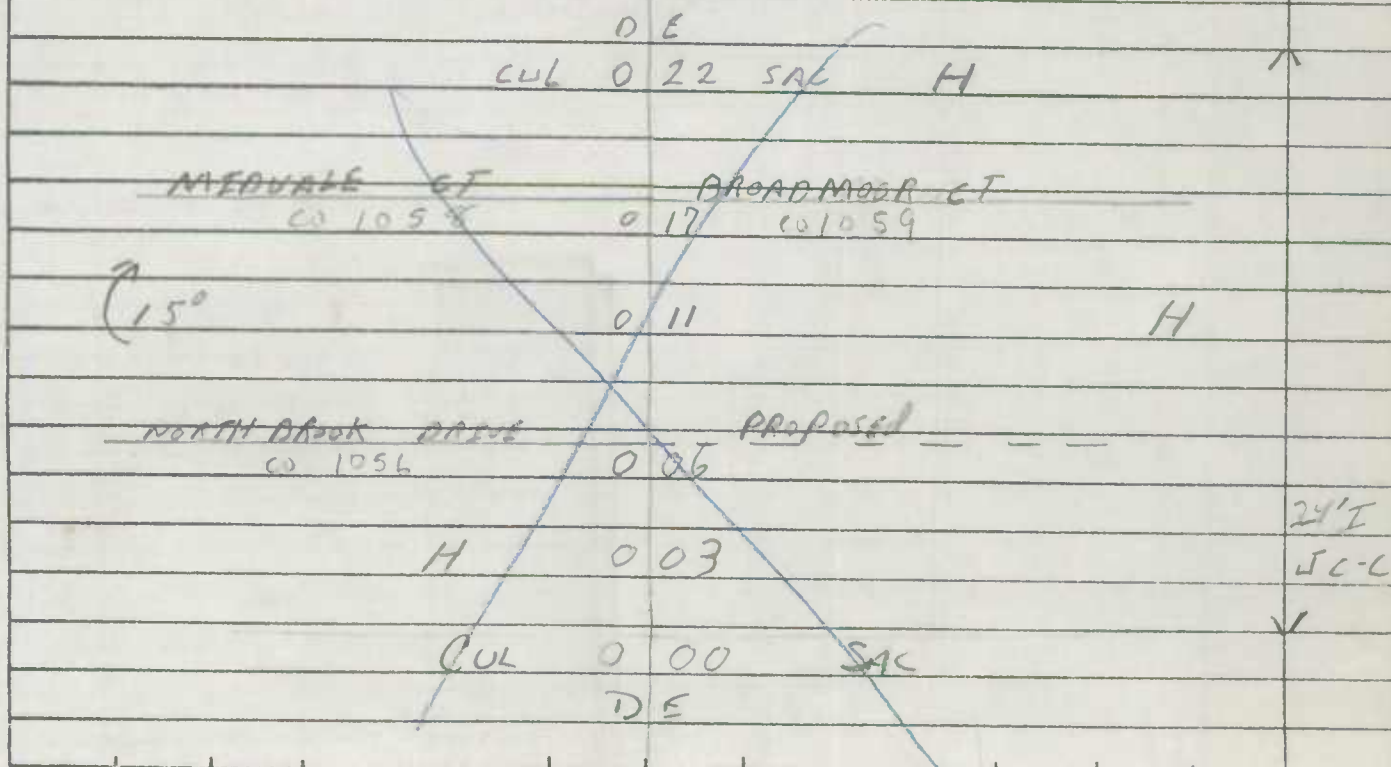 D E
CUL 0 22 SAC H
MEDVALE CT BROADMOOR CT
CO 1058 0 17 CO 1059
15° 0 11 H
NORTH BROOK DRIVE PROPOSED
CO 1056 0 06
24' I
H 0 03
J C-C
CUL 0 00 SAC
D E